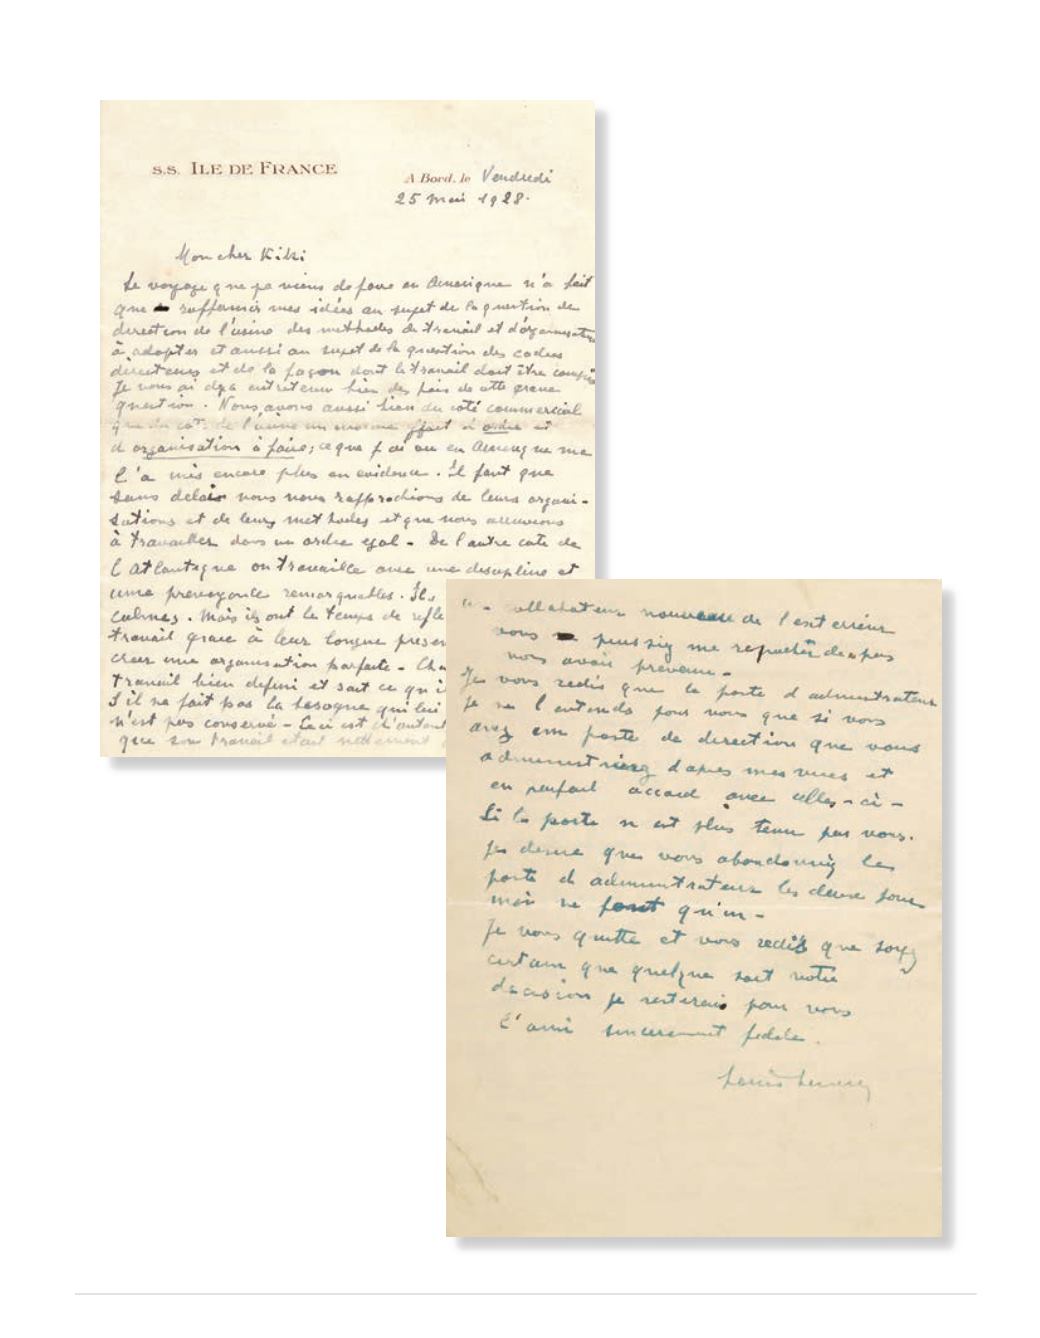 S.S. ILE DE FRANCE
A Bord, le Vendredi
25 mai 1928.
Mon cher Kiki
Le voyage que je viens de faire en Amerique n'a fait
que raffermir mes idées au sujet de la question de
direction de l'usine des methodes de travail et d'organisation
à adopter et aussi au sujet de la question des cadres
directeurs et de la façon dont le travail doit être compris
Je vous ai deja entretenu bien des fois de cette grave
question. Nous avons aussi bien du coté commercial
que du coté de l'usine un enorme effort d'ordre et
d'organisation à faire; ce que j'ai vu en Amerique me
l'a mis encore plus en evidence. Il faut que
sans delais nous nous rapprochions de leurs organi-
sations et de leurs methodes et que nous arrivions
à travailler dans un ordre egal - De l'autre coté de
l'Atlantique on travaille avec une discipline et
une prevoyance remarquables. Ils
calmes. Mais ils ont le temps de refle
travail grace à leur longue
creer une organisation parfaite - Cha
travail bien defini et sait ce qu'i
S'il ne fait pas la besogne qui lui
n'est pas conservé - Ceci est d'autant
que son travail etait nettement
collaborateur nouveau de l'exterieur
vous ne puissiez me reprocher de ne pas
vous avoir prevenu -
Je vous redis que le poste d'administrateur
je ne l'entends pour vous que si vous
avez un poste de direction que vous
administriez d'apres mes vues et
en parfait accord avec celles-ci -
Si le poste n'est plus tenu par vous.
Je desire que vous abandonniez le
poste d'administrateur les deux pour
moi ne font qu'un -
Je vous quitte et vous redis que soyez
certain que quelque soit votre
decision je resterai pour vous
l'ami sincerement fidele.
Louis Renault